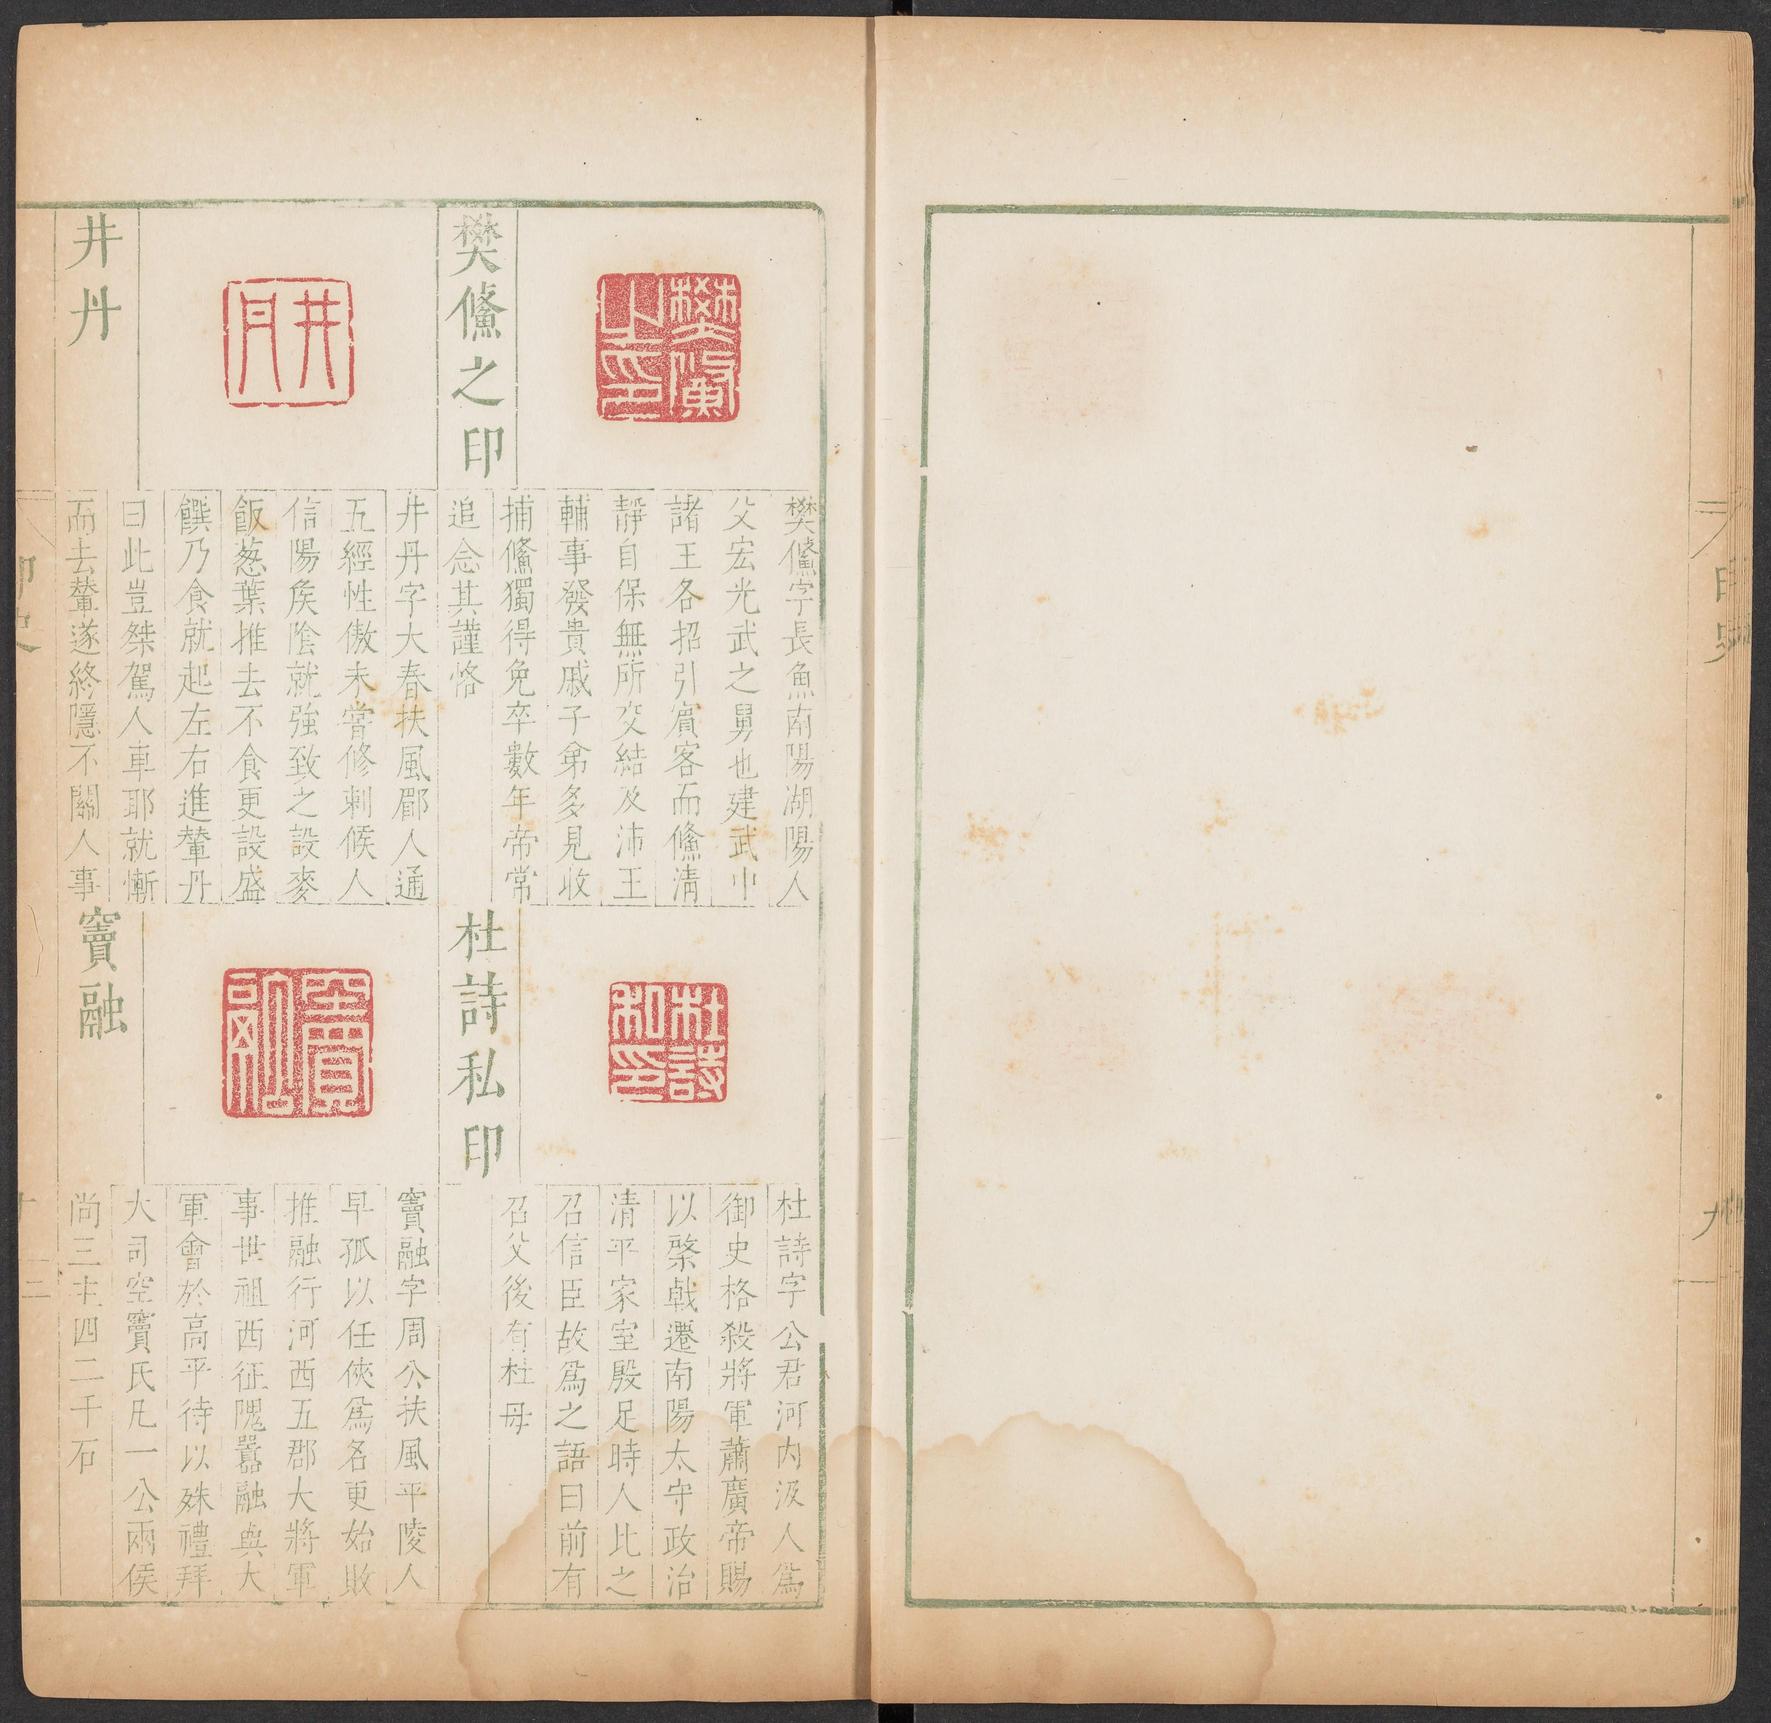 樊鯈之印
樊鯈字長魚南陽湖陽人
父宏光武之舅也建武中
諸王各招引賓客而鯈清
靜自保無所交結及沛王
輔事發貴戚子弟多見收
捕鯈獨得免卒數年帝常
追念其謹恪
井丹
井丹字大春扶風郿人通
五經性傲未嘗修刺候人
信陽矦陰就強致之設麥
飯葱葉推去不食更設盛
饌乃食就起左右進輦丹
曰此豈桀駕人車耶就慚
而去輦遂終隱不關人事
杜詩私印
杜詩字公君河內汲人爲
御史格殺將軍蕭廣帝賜
以棨戟遷南陽太守政治
清平家室殷足時人比之
召信臣故爲之語曰前有
召父後有杜母
竇融
竇融字周公扶風平陵人
早孤以任俠爲名更始敗
推融行河西五郡大將軍
事世祖西征隗囂融與大
軍會於高平待以殊禮拜
大司空竇氏凡一公兩侯
尚三主四二千石